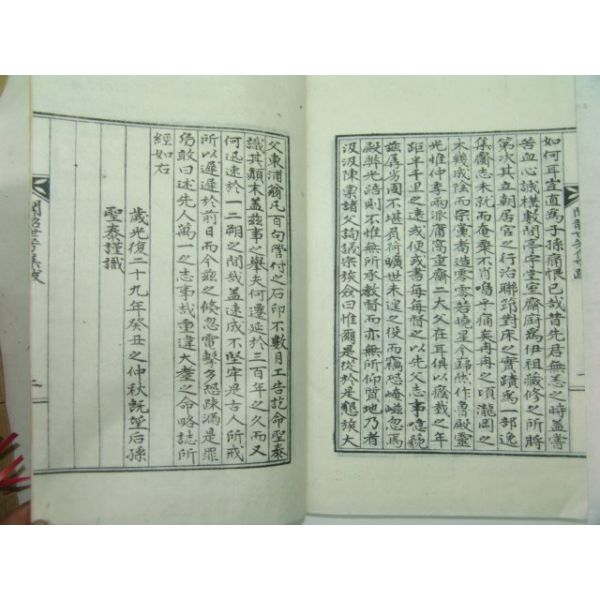 如何耳豈直爲子孫痛恨已哉昔先君無恙之時蓋嘗
苦血心誠構數間亭宇堂室齋廚爲伊祖藏修之所將
第次其立朝居官之行治聯節對床之實蹟爲一部逸
集齎志未就而奄棄不肖嗚乎痛矣冉冉之頃瀧岡之
木幾成陰而宗黨耆造零零若曉星今歸然作魯殿靈
光惟仲季兩派庸窩重齋二大父在耳俱以癃戴之年
距半千里之遠或便或書每每督之以先父志事噫貌
玆孱劣固不堪負荷曠世未遑之役而竊恐崦嵫忽焉
殿牌光浩則不惟無所承教督而亦無所仰質地乃者
汲汲陳稟諸父詢謀宗族僉曰惟爾是從於是懇族大
父東浦翁凡百句管付之石印不數月工告訖命聖秦
識其顚末蓋玆事之擧夫何遷延於三百年之久而又
何迅速於一二朔之間哉蓋速成不堅牢是古人所戒
所以遲遲於前日而今玆之倏忽雷擊多恐疎漏是罪
仍敢曰述先人萬一之志事哉重違大耋之命略誌所
經如右
歲光復二十九年癸丑之仲秋旣望后孫
聖秦謹識